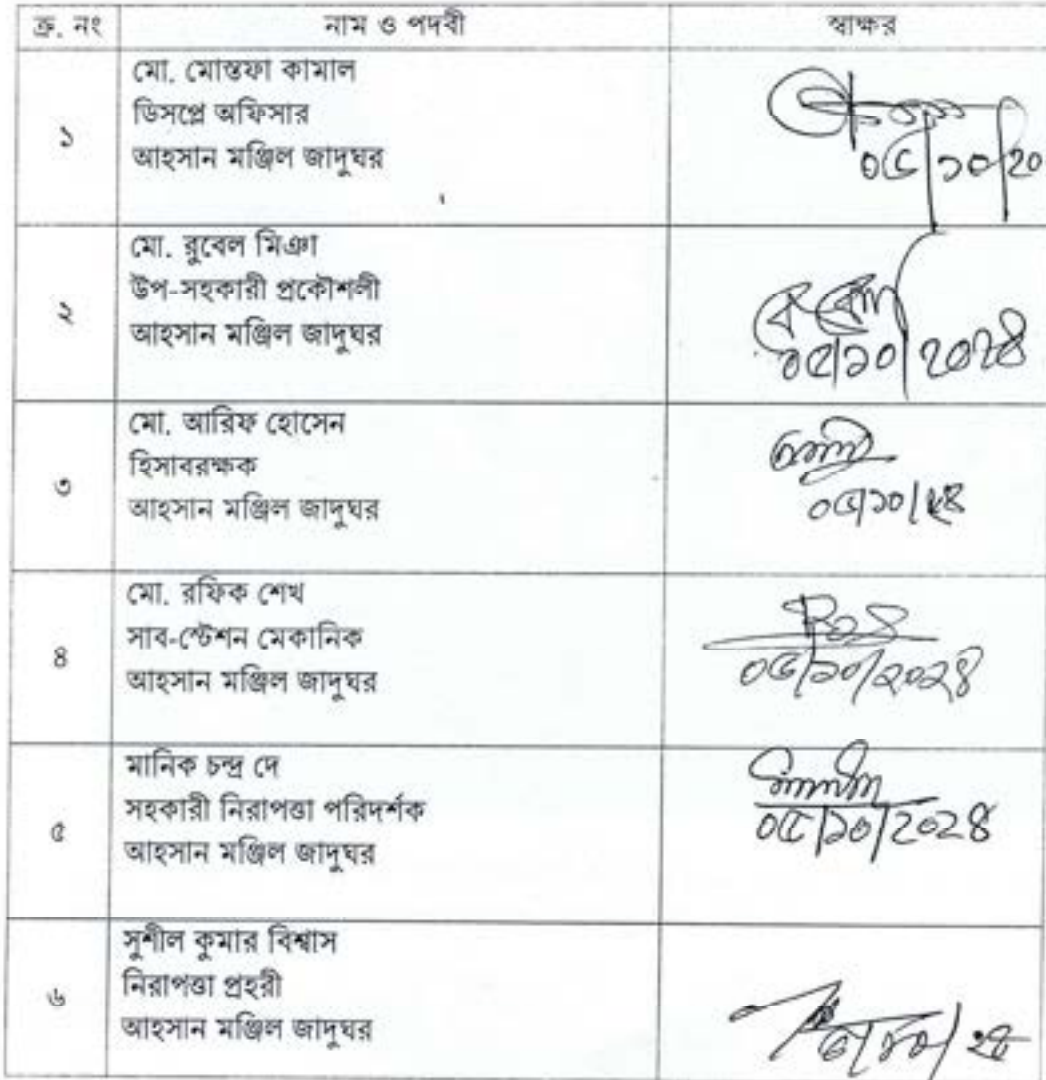 ক্র. নং নাম ও পদবী স্বাক্ষর
১
মো. মোস্তফা কামাল
ডিসপ্লে অফিসার
আহসান মঞ্জিল জাদুঘর
০৫/১০/২০
২
মো. রুবেল মিঞা
উপ-সহকারী প্রকৌশলী
আহসান মঞ্জিল জাদুঘর
০৫/১০/২০২৪
৩
মো. আরিফ হোসেন
হিসাবরক্ষক
আহসান মঞ্জিল জাদুঘর
৪
মো. রফিক শেখ
সাব-স্টেশন মেকানিক
আহসান মঞ্জিল জাদুঘর
০৫/১০/২০২৪
৫
মানিক চন্দ্র দে
সহকারী নিরাপত্তা পরিদর্শক
আহসান মঞ্জিল জাদুঘর
০৫/১০/২০২৪
৬
সুশীল কুমার বিশ্বাস
নিরাপত্তা প্রহরী
আহসান মঞ্জিল জাদুঘর